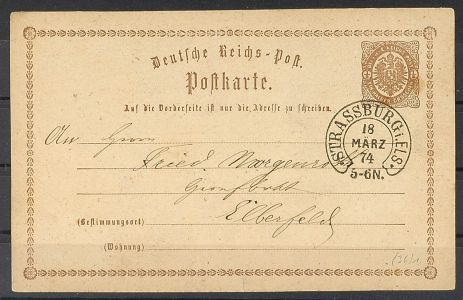 Deutsche Reichs-Post.
Postkarte.
Auf die Vorderseite ist nur die Adresse zu schreiben.
STRASSBURG i. ELS
18
MÄRZ
74
5-6N.
An Herrn
Fried.
Elberfeld
(Bestimmungsort)
(Wohnung)